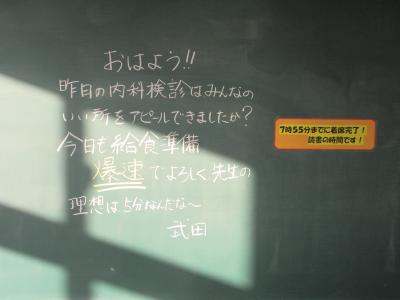 おはよう!!
昨日の内科検診はみんなの
いい所をアピールできましたか?
今日も給食準備
爆速でよろしく先生の
理想は5分なんだな〜
武田
7時55分までに着席完了!
読書の時間です!